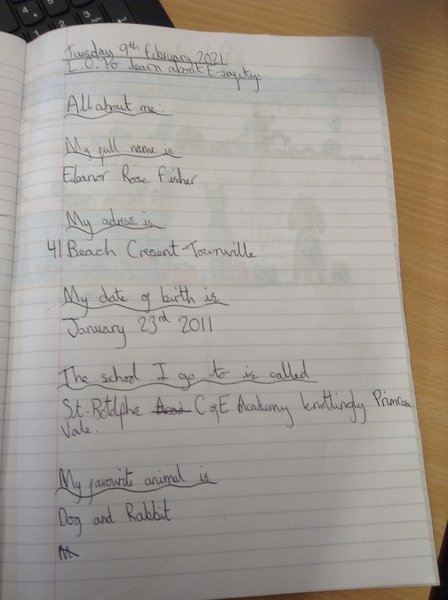 Tuesday 9th February 2021
L.O: To learn about E-safety.
All about me:
My full name is
Eleanor Rose Fisher
My adress is
41 Beach Cresent-Townville
My date of birth is
January 23rd 2011
The school I go to is called
St. Botolphs CofE Academy knottingly Primrose
Vale.
My favourite animal is
Dog and Rabbit